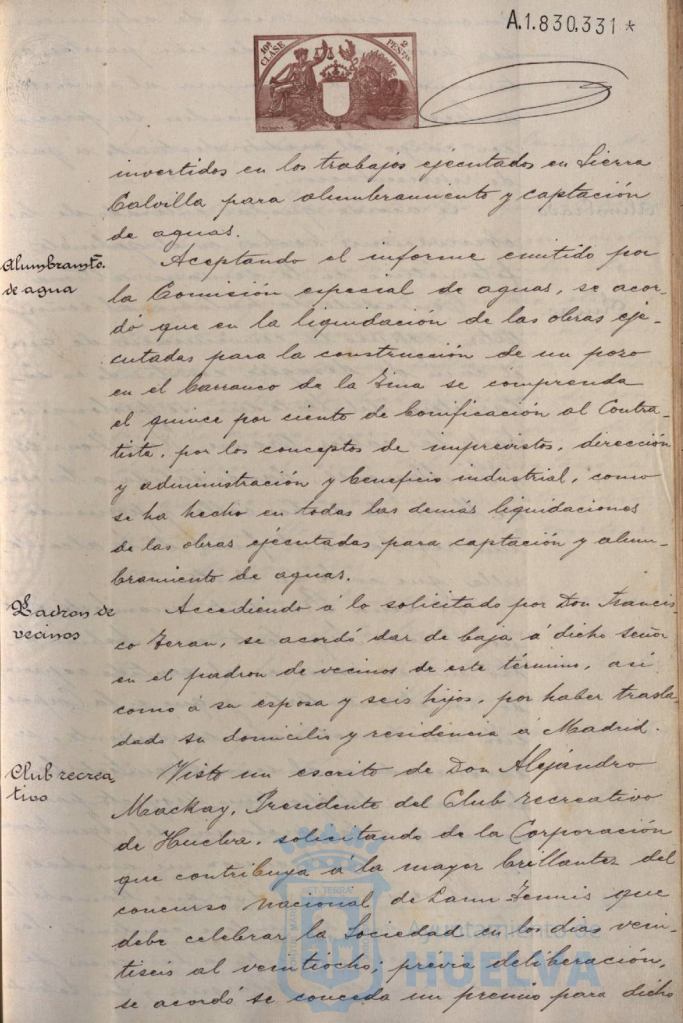 A.1.830,331 *
10ª CLASE
2 PESETAS
invertidos en los trabajos ejecutados en Sierra
Calvilla para alumbramiento y captación
de aguas.
Alumbramto.
de agua
Aceptando el informe emitido por
la Comisión especial de aguas, se acor-
dó que en la liquidación de las obras eje-
cutadas para la construcción de un pozo
en el barranco de la Zina se comprenda
el quince por ciento de bonificación al Contra-
tista, por los conceptos de imprevistos, dirección
y administración y beneficio industrial, como
se ha hecho en todas las demás liquidaciones
de las obras ejecutadas para captación y alum-
bramiento de aguas.
Padron de
vecinos
Accediendo á lo solicitado por Don Francis-
co Teran, se acordó dar de baja á dicho señor
en el padron de vecinos de este término, así
como á su esposa y seis hijos, por haber trasla-
dado su domicilio y residencia á Madrid.
Club recrea-
tivo
Visto un escrito de Don Alejandro
Mackay, Presidente del Club recreativo
de Huelva, solicitando de la Corporación
que contribuya á la mayor brillantez del
concurso nacional de Lawn-Tennis que
debe celebrar la Sociedad en los dias vein-
tiseis al veintiocho; previa deliberación,
se acordó se conceda un premio para dicho
Ayuntamiento de
HUELVA